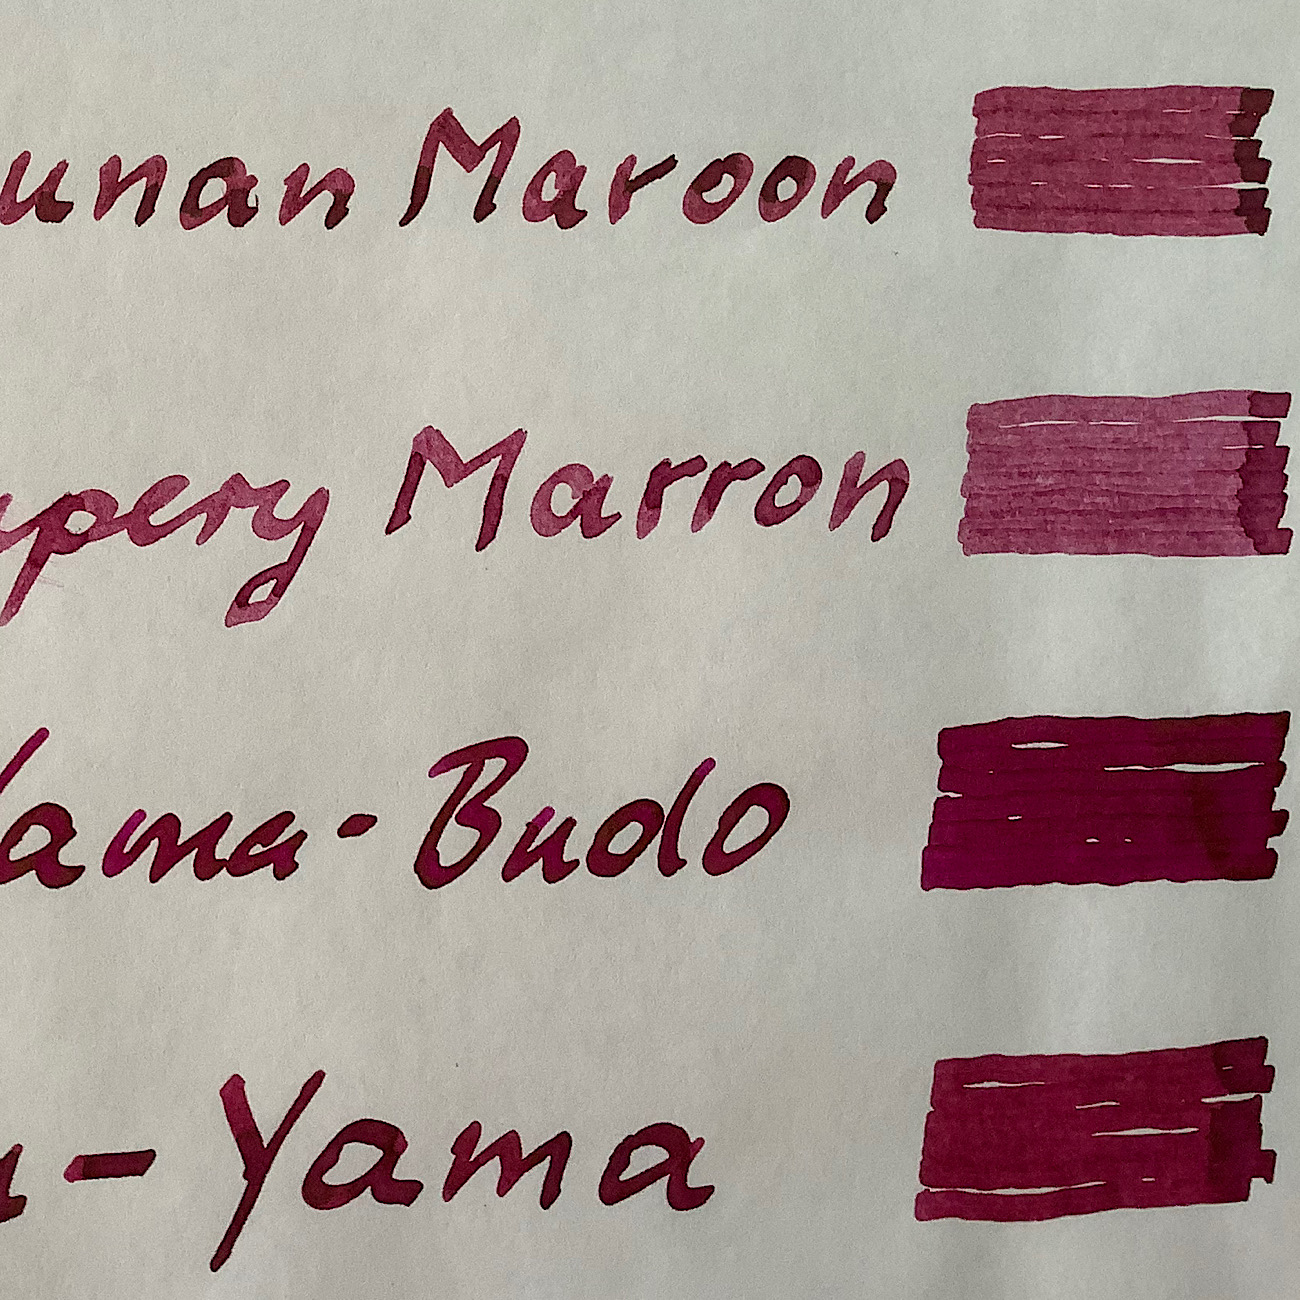 unan Maroon
pery Marron
Yama-Budo
- Yama